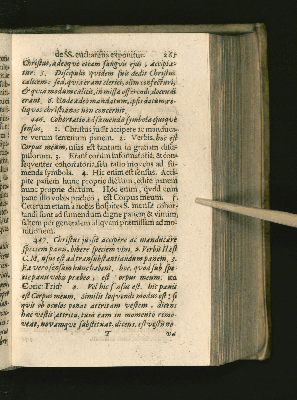 de SS. eucharistia exponitur. 285
Christus, adeoque etiam sanguis ejus, accipia-
tur. 5. Discipulis quidem suis dedit Christus
calicem: sed, quia erant clerici, olim confecturi,
& quia modum calicis, in missa offerendi, docendi
erant. 6. Unde adeo mandatum,
liquos christianos non concernit.
446. Cohortatio ad sumenda symbola quinque
sensus. 1. Christus jussit accipere & manduca-
re verum terrenum panem. 2. Verbis, hoc est
Corpus meum, usus est tantum in gratiam disci-
pulorum. 3. Erant enim & con-
sequenter cohortatoria, seu ratio ad su-
menda symbola. 4. Hic enim est sensus. Acci-
pite panem hunc proprie dictum, edite panem
hunc proprie dictum. Hoc enim, quod cum
pane illo vobis præbeo, est Corpus meum. 5.
Ceterum etiam a nobis hospites S. mensæ cohor-
tandi sunt ad sumendum digne panem & vinum,
saltem per generalem aliquam præmissam ad mo-
nitionem.
447. Christus jussit accipere ac manducare
speciem panis, bibere speciem vini. 2. Verbis H. est
C. M. usus est ad transsubstantiandum panem. 3.
Ex vero sensum hunc habent, hoc, quod sub spe-
cie panis vobis præbeo, est corpus meum. Ex
4. Vel hic, scil. est. hic panis
est Corpus meum. Similis loquendi modus est, si
quis ob oculos ponat attritam vestem, dicens
hæc vestis attrita, tum eam in momento remo-
veat, novamque substituat, dicens, est vestis no-
T va